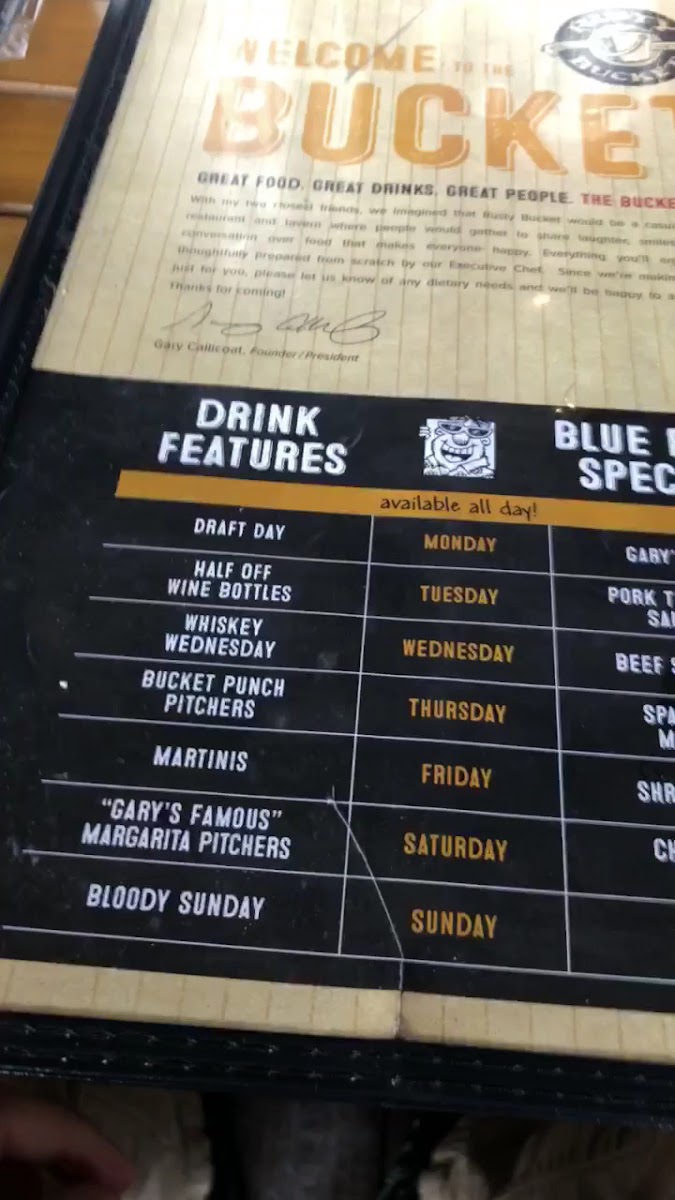 WELCOME TO THE
BUCKET
BUCKET
GREAT FOOD. GREAT DRINKS. GREAT PEOPLE. THE BUCKE
With my two closest friends, we imagined that Rusty Bucket would be a casu
restaurant and tavern where people would gather to share laughter, smiles
conversation over food that makes everyone happy. Everything you'll en
thoughtfully prepared from scratch by our Executive Chef. Since we're makin
just for you, please let us know of any dietary needs and we'll be happy to a
Thanks for coming!
Gary Callicoat, Founder/President
DRINK
FEATURES
BLUE
SPEC
available all day!
DRAFT DAY
MONDAY
GARY'
HALF OFF
WINE BOTTLES
TUESDAY
PORK T
SA
WHISKEY
WEDNESDAY
WEDNESDAY
BEEF S
BUCKET PUNCH
PITCHERS
THURSDAY
SPA
M
MARTINIS
FRIDAY
SHR
"GARY'S FAMOUS"
MARGARITA PITCHERS
SATURDAY
CH
BLOODY SUNDAY
SUNDAY